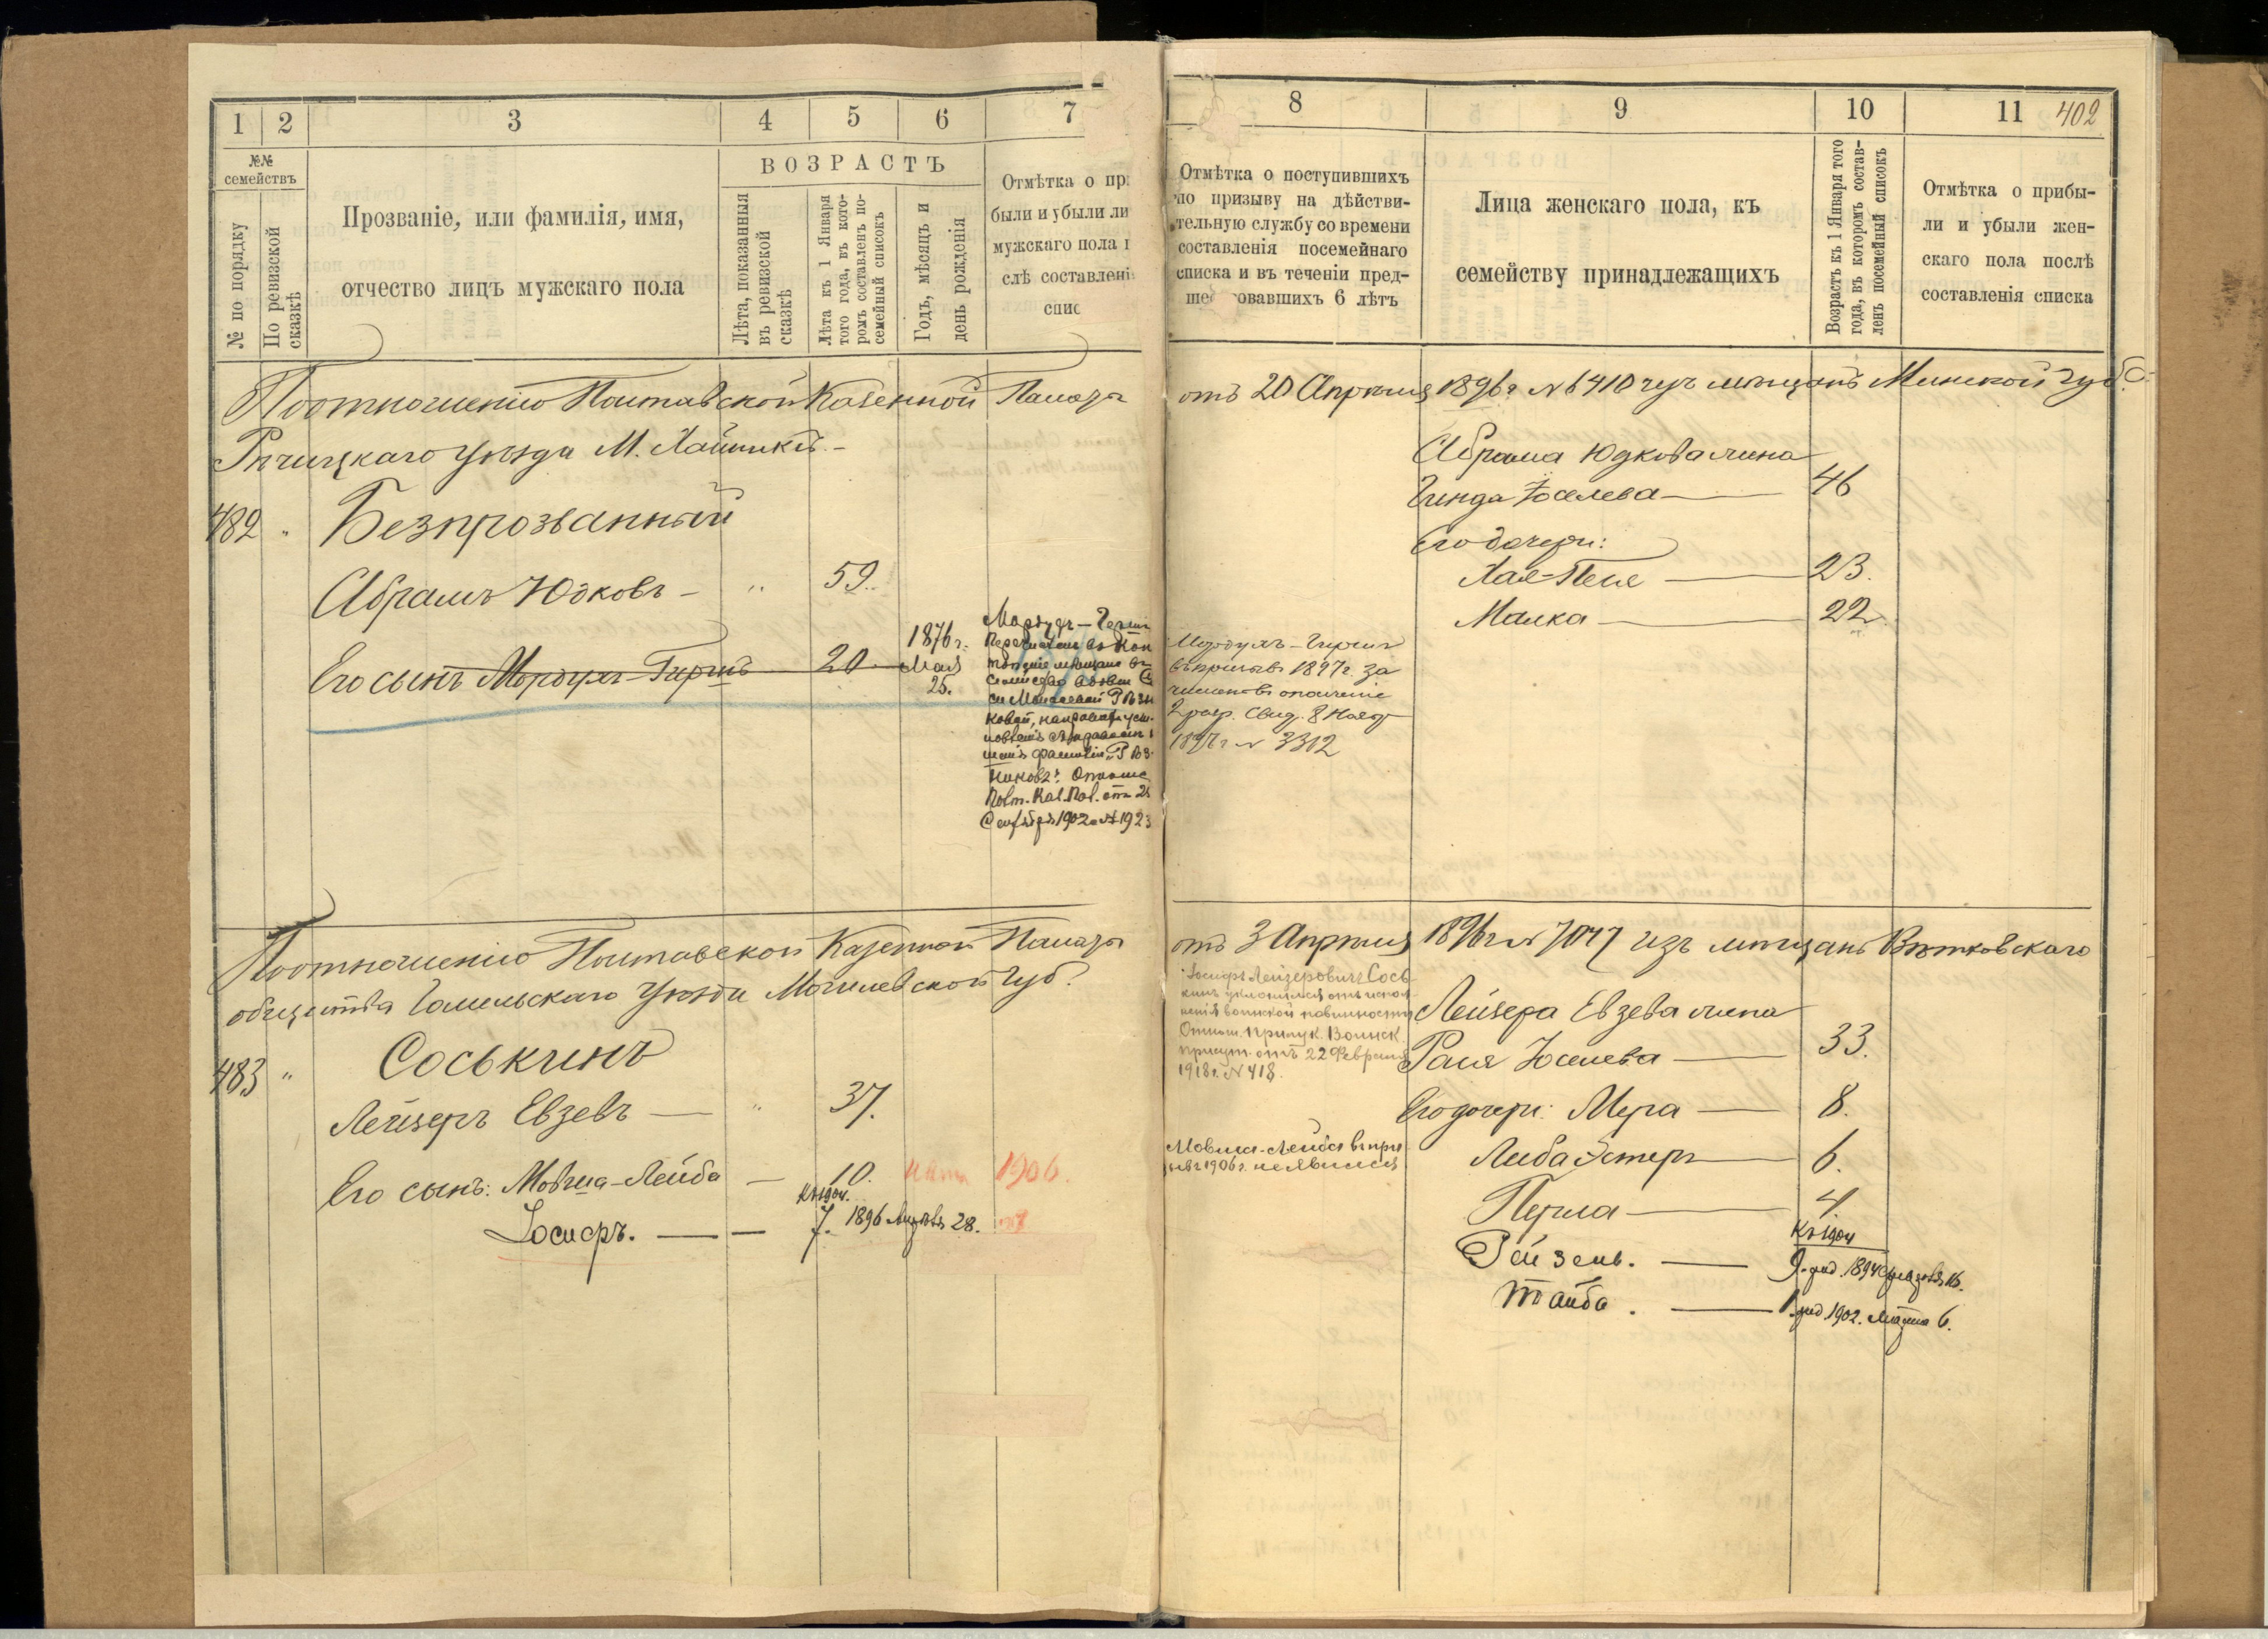 1 2 3 4 5 6 7
№№ семействъ
№ по порядку
По ревизской сказкѣ
Прозваніе, или фамилія, имя,
отчество лицъ мужскаго пола
ВОЗРАСТЪ
Лѣта, показанныя
въ ревизской
сказкѣ
Лѣта къ 1 Января
того года, въ кото-
ромъ составленъ по-
семейный списокъ
Годъ, мѣсяцъ и
день рожденія
Отмѣтка о при
были и убыли ли
мужскаго пола п
слѣ составлені
спис
По отношенію Полтавской Казенной Палаты
Рѣчицкаго уѣзда М. Хойникъ.-
482 " Безпрозванный
Абрамъ Юдковъ - " 59.
Его сынъ Мордухъ-Гиршъ 20. 1876 г.
Мая
25.
Мордухъ-Гирш
перечисленъ въ Кон
семейство вдовы
ковой,
фамилія "Рѣз-
никовъ".
Полт. Каз. Пал. отъ 2
Сентября 1902 г. № 1923
По отношенію Полтавской Казенной Палаты
общества Гомельскаго уѣзда Могилевской губ.
483 " Соськинъ
Лейзеръ Евзевъ — " 37.
Его сынъ: Мовша-Лейба — 10. 1906.
Къ 1904.
Іосифъ. — — 7. 1896 28.
8 9 10 11 402
Отмѣтка о поступившихъ
по призыву на дѣйстви-
тельную службу со времени
составленія посемейнаго
списка и въ теченіи пред-
ше овавшихъ 6 лѣтъ
Лица женскаго пола, къ
семейству принадлежащихъ
Возрастъ къ 1 Января того
года, въ которомъ состав-
ленъ посемейный списокъ
Отмѣтка о прибы-
ли и убыли жен-
скаго пола послѣ
составленія списка
отъ 20 Апрѣля 1896 г. № 6410 изъ мѣщанъ Минской губ.
Абрама Юдкова жена
Гинда Іоселева — 46
Его дочери:
Хая-Песя — 23.
Малка — 22.
Мордухъ-Гиршъ
въ призывъ 1897 г. за
численъ въ ополченіе
2 разр. Свид. 8 Нояб.
1897 г. № 3312
отъ 3 Апрѣля 1896 г. № 7047 изъ мѣщанъ Вѣтковскаго
Іосифъ Лейзеровичъ Сось-
кинъ уклонился отъ испол
ненія воинской повинности
Отнош. Прилук. Воинск.
присут. отъ 22 Февраля
1918 г. № 418.
Лейзера Евзева жена
Рася Іоселева — 33.
Его дочери: Мера — 8.
Мовша-Лейба въ при
зывъ 1906 г. не явился
Либа Эстеръ — 6.
Перла — 4.
Къ 1904
Рейзель. — 9. род. 1894 16.
Тайба. — 1. род. 1902. Марта 6.